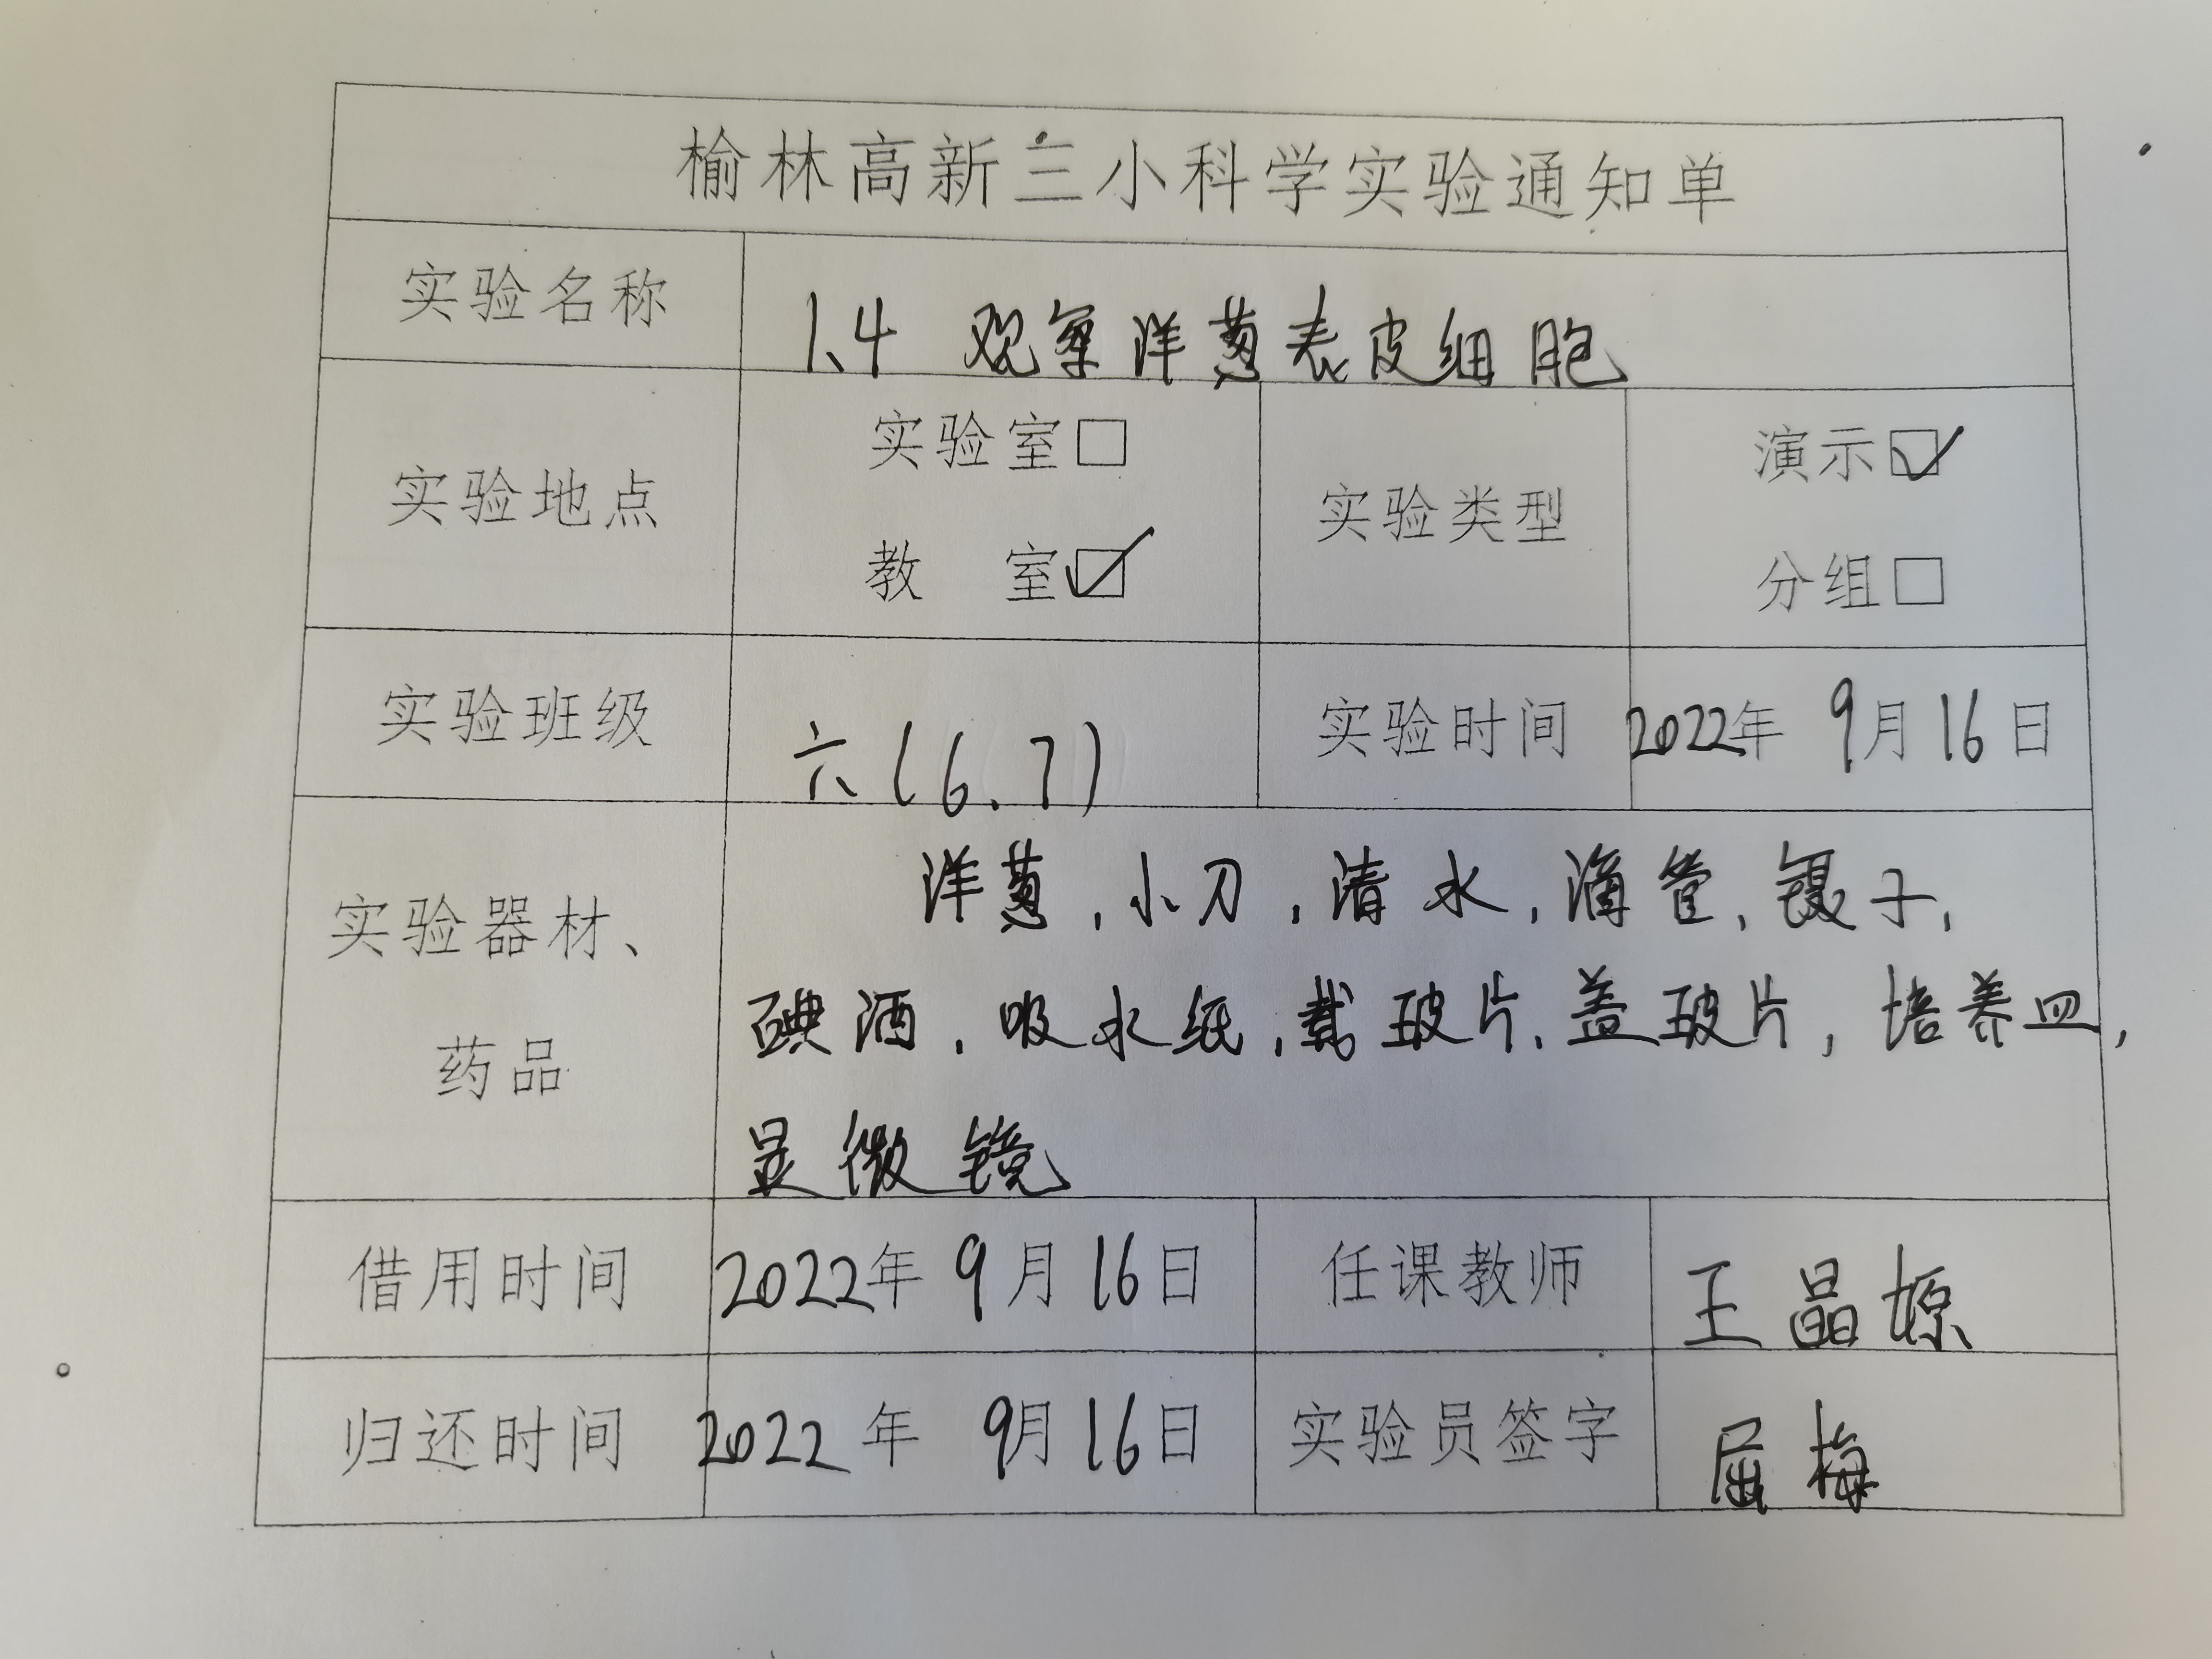 榆林高新三小科学实验通知单
实验名称 1.4 观察洋葱表皮细胞
实验地点 实验室□ 教 室☑ 实验类型 演示☑ 分组□
实验班级 六(6.7) 实验时间 2022年 9月16日
实验器材、药品
洋葱,小刀,清水,滴管,镊子,
碘酒,吸水纸,载玻片,盖玻片,培养皿,
显微镜
借用时间 2022年 9月16日 任课教师 王晶
归还时间 2022年 9月16日 实验员签字 屈梅